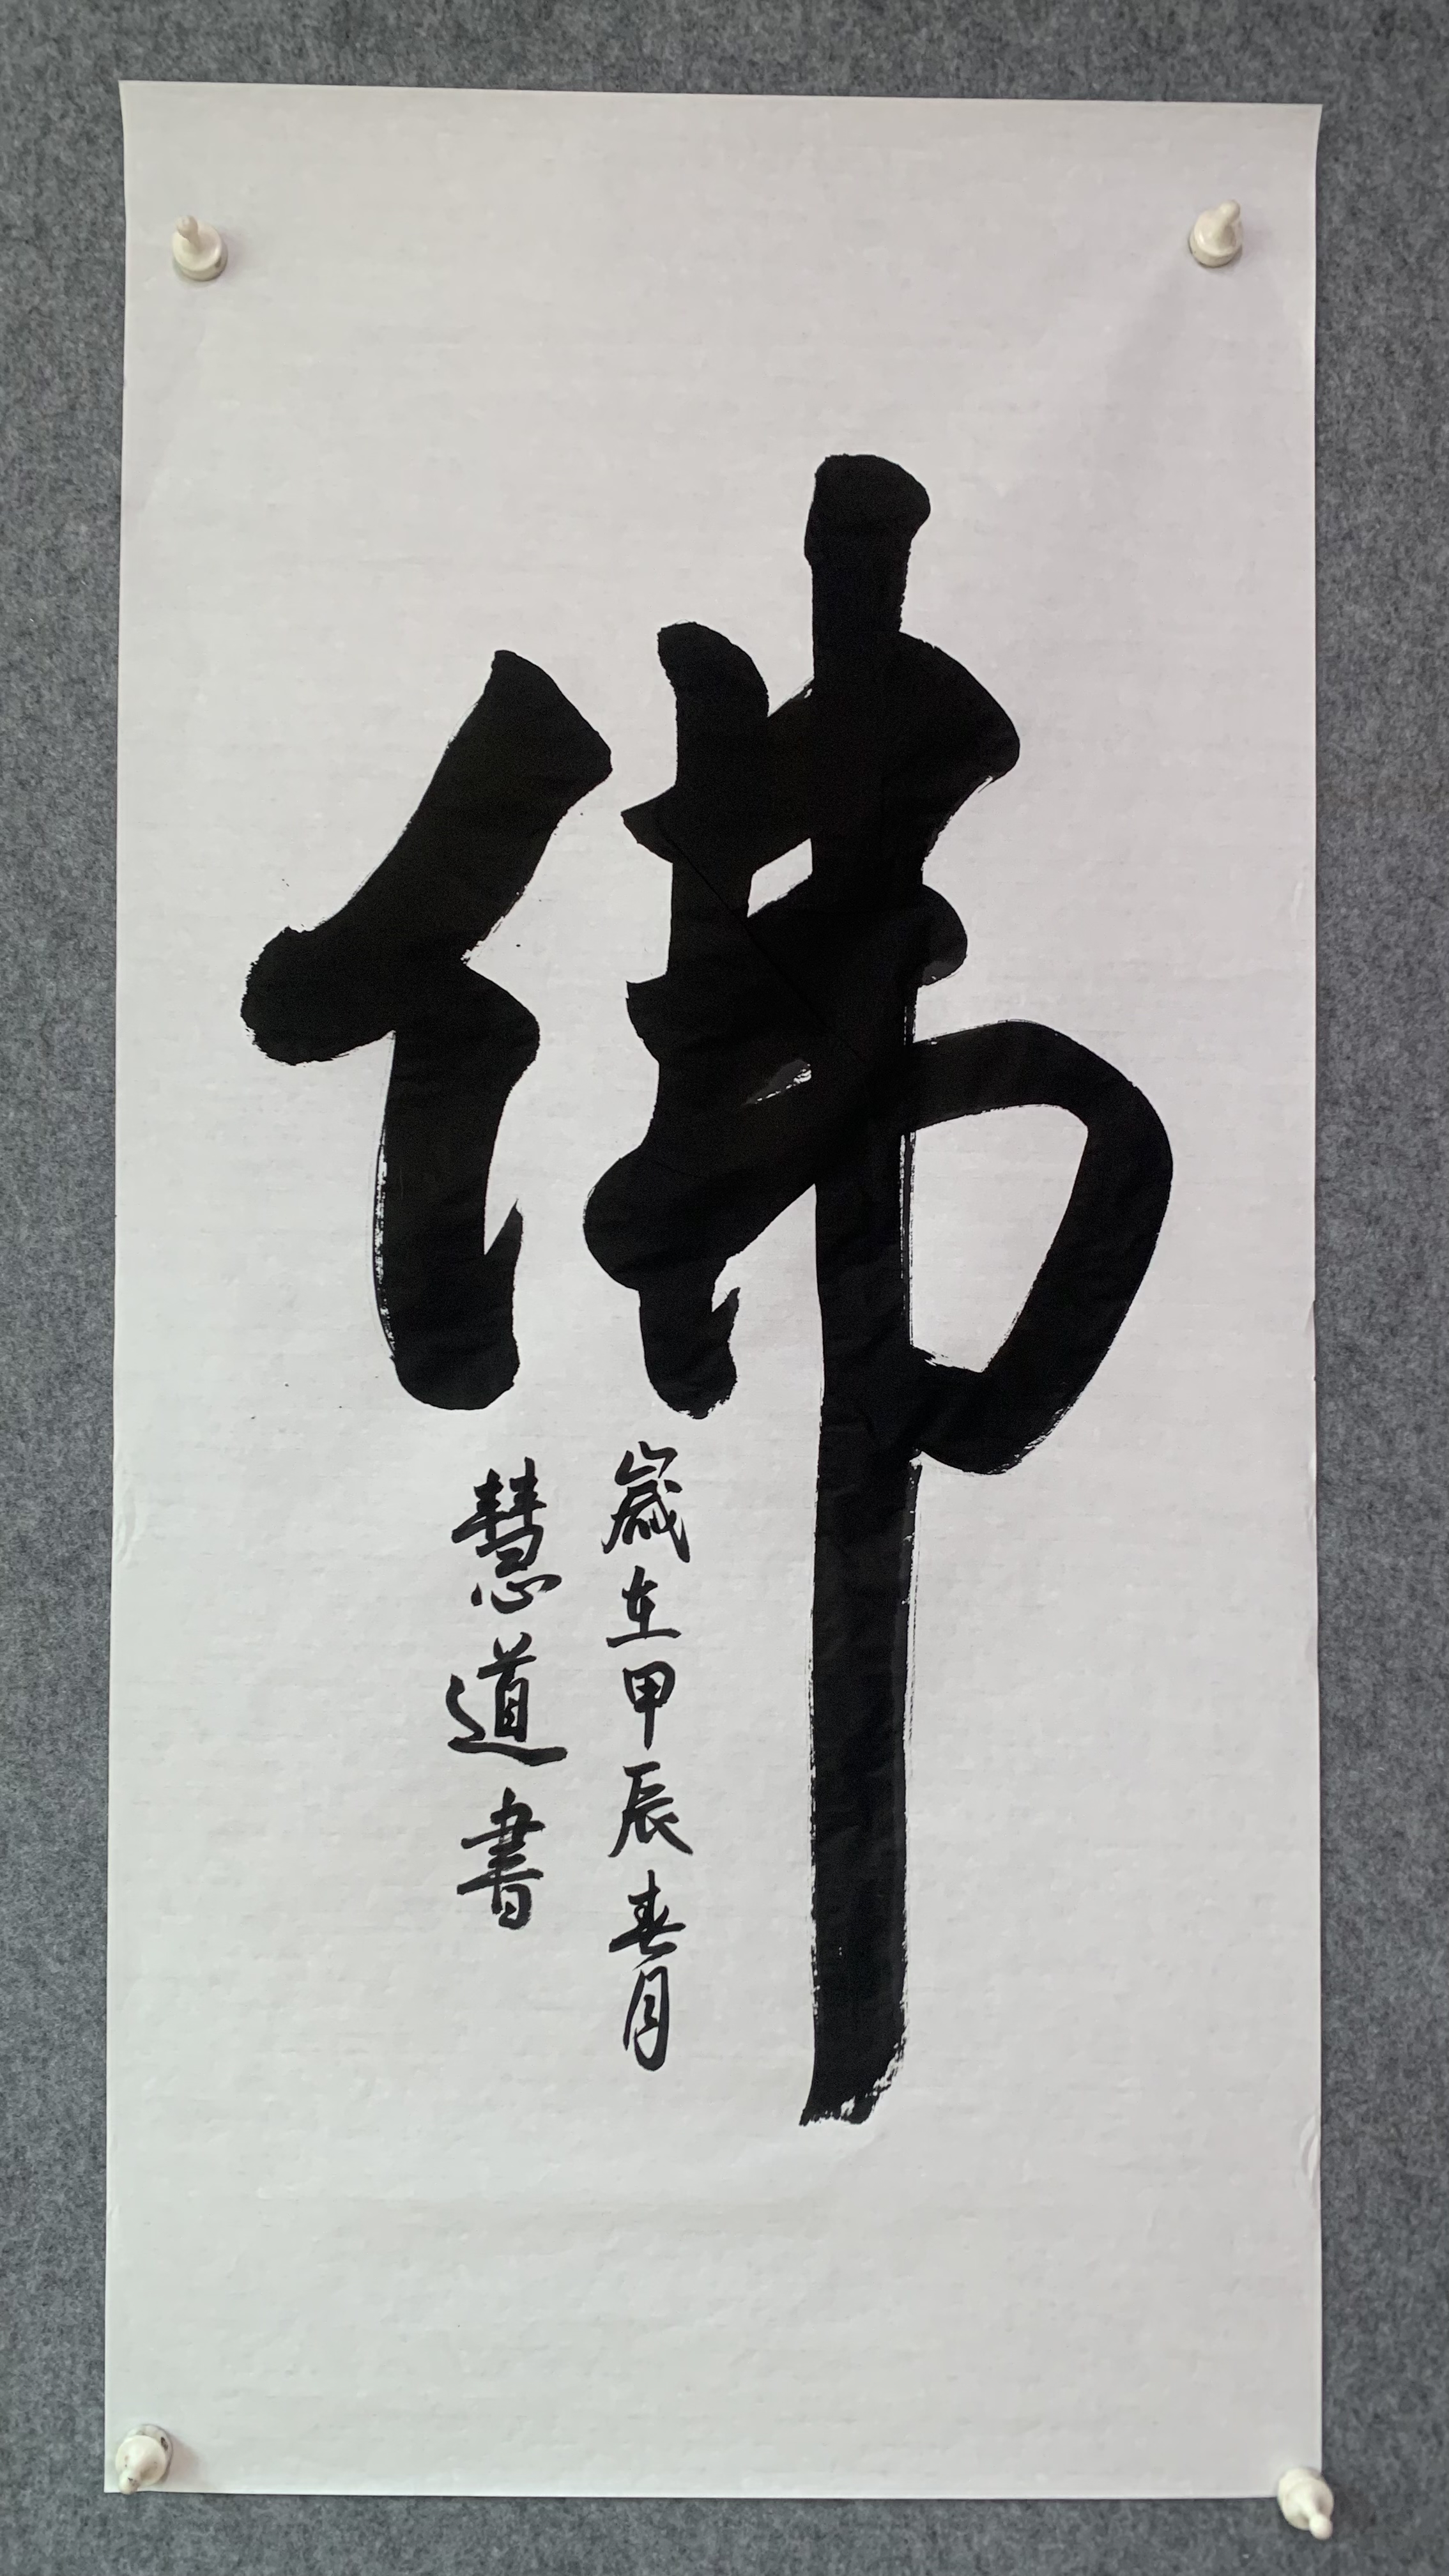 佛
歲在甲辰春月
慧道書